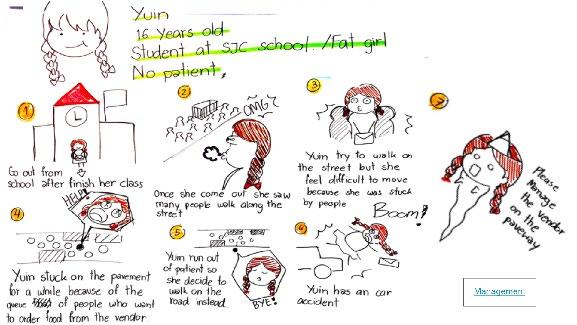 Yuin
16 Years old
Student at SJC school. /Fat girl
No patient.
1
Go out from
school after finish her class
2
OMG?
Once she come out she saw
many people walk along the
street
3
Yuin try to walk on
the street but she
feel difficult to move
because she was stuck
by people
4
HELP!
Yuin stuck on the pavement
for a while because of the
queue of people who want
to order food from the vendor.
5
Yuin run out
of patient so
she decide to
walk on the
road instead.
BYE!
6
Boom!
Yuin has an car
accident
7
Please
Manage
the vendor
on the
pavemway
Management